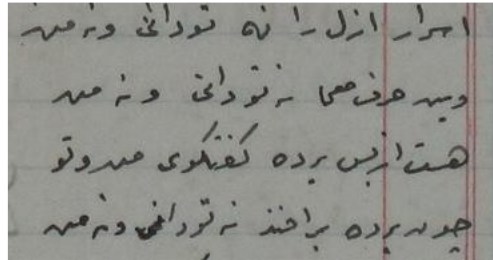 اسرار ازل را نه تو دانی و نه من
وین حرف معما نه تو دانی و نه من
هست از پس پرده گفتگوی من و تو
چون پرده برافتد نه تو دانی و نه من